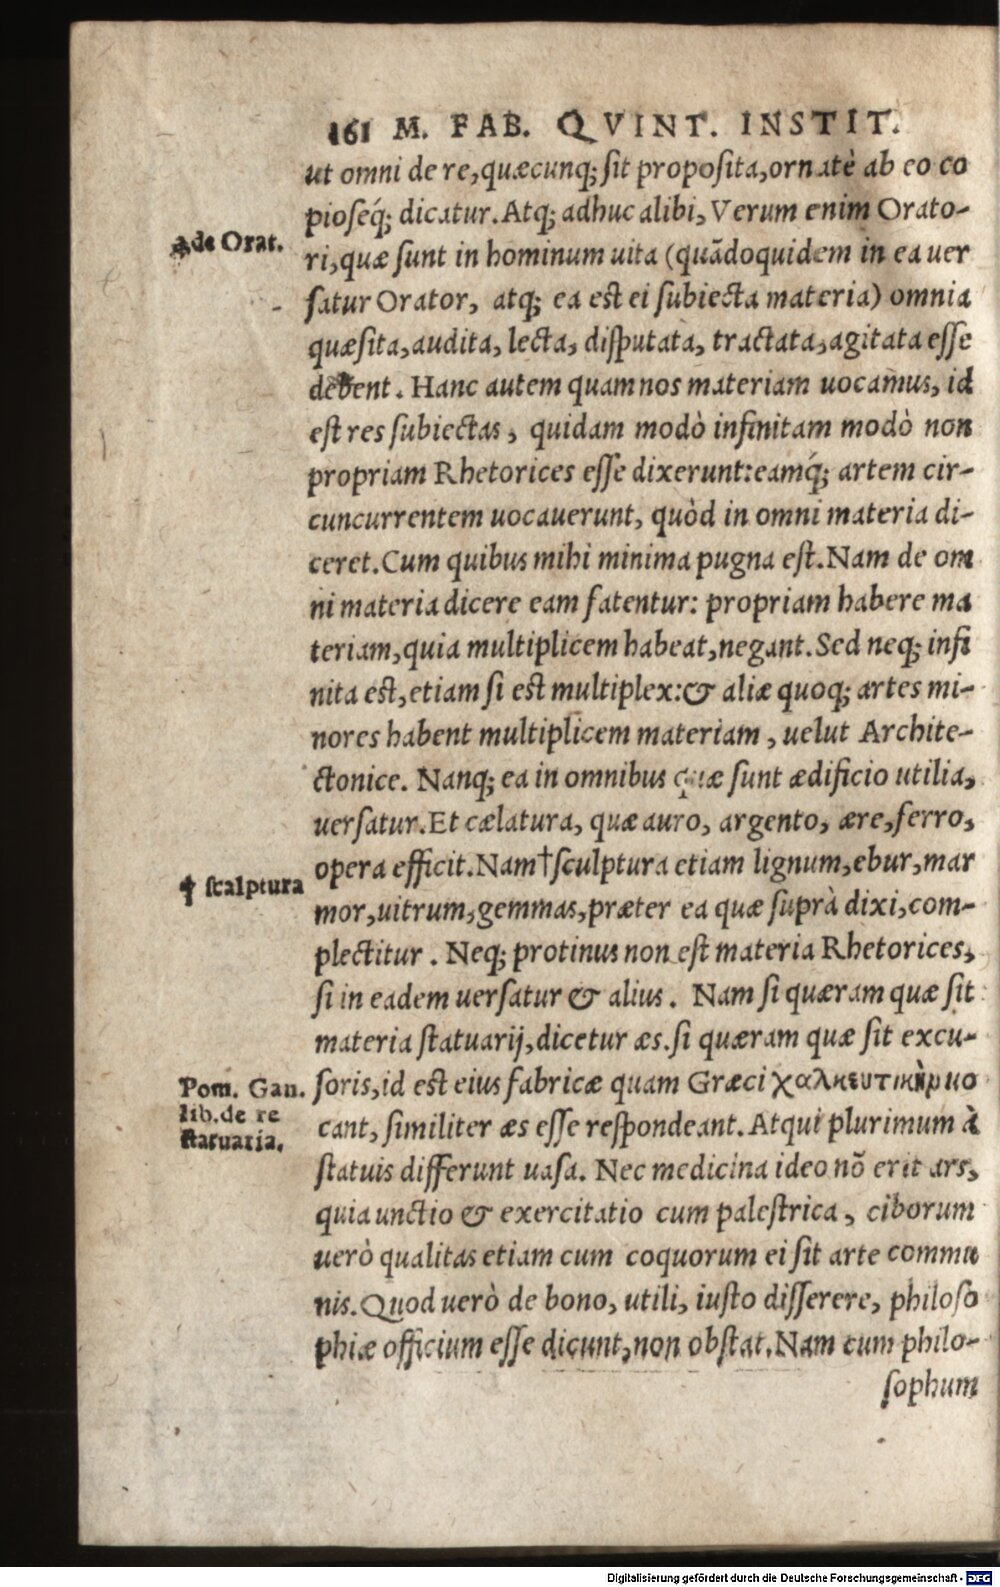 161 M. FAB. QVINT. INSTIT.
ut omni de re, quæcunq; sit proposita, ornatè ab eo co
pioseq́; dicatur. Atq; adhuc alibi, Verum enim Orato-
de Orat.
ri, quæ sunt in hominum uita (quādoquidem in ea uer
satur Orator, atq; ea est ei subiecta materia) omnia
quæsita, audita, lecta, disputata, tractata, agitata esse
debent. Hanc autem quam nos materiam uocamus, id
est res subiectas, quidam modò infinitam modò non
propriam Rhetorices esse dixerunt: eamq́; artem cir-
cuncurrentem uocauerunt, quòd in omni materia di-
ceret. Cum quibus mihi minima pugna est. Nam de om
ni materia dicere eam fatentur: propriam habere ma
teriam, quia multiplicem habeat, negant. Sed neq; infi
nita est, etiam si est multiplex: & aliæ quoq; artes mi-
nores habent multiplicem materiam, uelut Archite-
ctonice. Nanq; ea in omnibus quæ sunt ædificio utilia,
uersatur. Et cælatura, quæ auro, argento, ære, ferro,
opera efficit. Nam † sculptura etiam lignum, ebur, mar
† scalptura
mor, uitrum, gemmas, præter ea quæ suprà dixi, com-
plectitur. Neq; protinus non est materia Rhetorices,
si in eadem uersatur & alius. Nam si quæram quæ sit
materia statuarij, dicetur æs. si quæram quæ sit excu-
soris, id est eius fabricæ quam Græci χαλκευτικὴν uo
Pom. Gau.
lib. de re
statuaria.
cant, similiter æs esse respondeant. Atqui plurimum à
statuis differunt uasa. Nec medicina ideo nō erit ars,
quia unctio & exercitatio cum palestrica, ciborum
uerò qualitas etiam cum coquorum ei sit arte commu
nis. Quod uerò de bono, utili, iusto disserere, philoso
phiæ officium esse dicunt, non obstat. Nam cum philo-
sophum
Digitalisierung gefördert durch die Deutsche Forschungsgemeinschaft - DFG